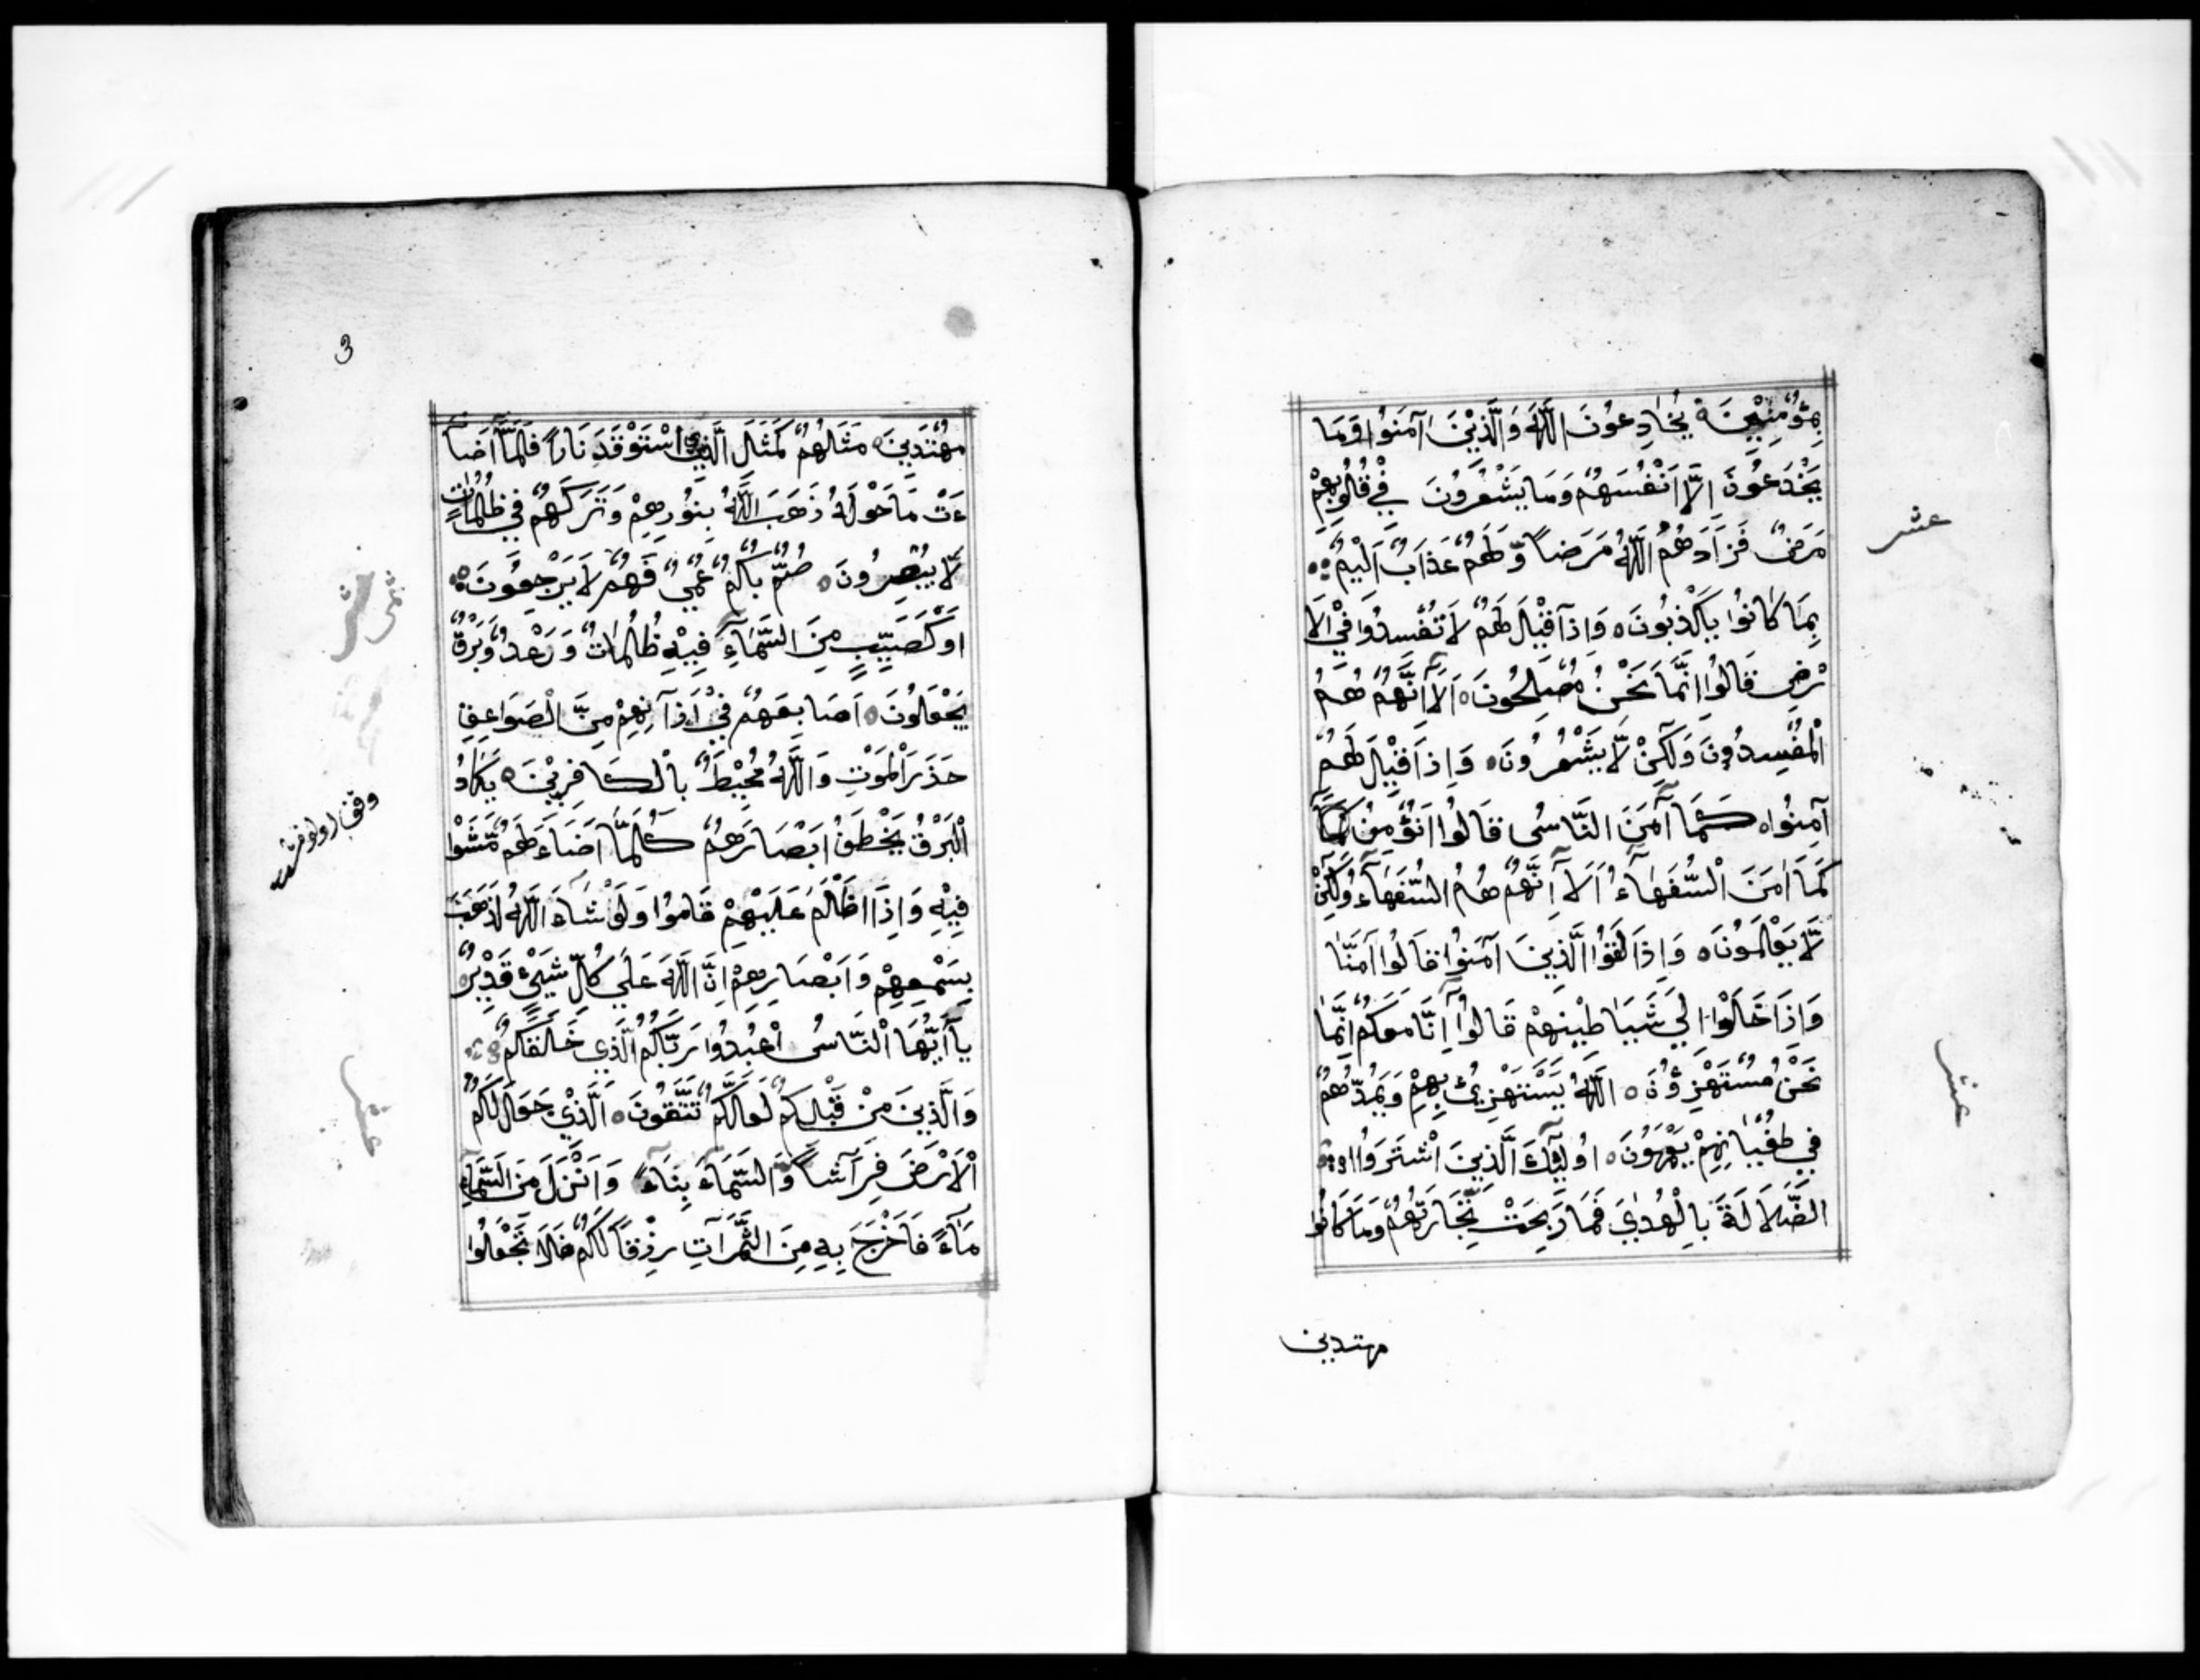 بِمُؤْمِنِيْنَ ه يُخَادِعُونَ اللَّهَ وَالَّذِيْنَ آمَنُوا وَمَا
يَخْدَعُونَ اِلَّا اَنْفُسَهُمْ وَمَا يَشْعُرُونَ فِيْ قُلُوبِهِمْ
مَرَضٌ فَزَادَهُمُ اللَّهُ مَرَضاً وَّلَهُمْ عَذَابٌ اَلِيْمٌ
بِمَا كَانُوا يَكْذِبُونَ ه وَاِذَا قِيْلَ لَهُمْ لَا تُفْسِدُوا فِيْ الْاَ
رْضِ قَالُوا اِنَّمَا نَحْنُ مُصْلِحُونَ ه اَلَا اِنَّهُمْ هُمُ
الْمُفْسِدُونَ وَلَكِنْ لَّا يَشْعُرُونَ ه وَاِذَا قِيْلَ لَهُمْ
آمِنُوا ه كَمَا آمَنَ النَّاسُ قَالُوا اَنُؤْمِنُ كَمَا
كَمَا اَمَنَ السُّفَهَاءُ اَلَا اِنَّهُمْ هُمُ السُّفَهَاءُ وَلَكِنْ
لَّا يَعْلَمُونَ ه وَاِذَا لَقُوا الَّذِينَ آمَنُوا قَالُوا آمَنَّا
وَاِذَا خَلَوْا اِلَي شَيَاطِيْنِهِمْ قَالُوا اِنَّا مَعَكُمْ اِنَّمَا
نَحْنُ مُسْتَهْزِؤُنَ ه اللَّهُ يَسْتَهْزِيُ بِهِمْ وَيَمُدُّهُمْ
فِي طُغْيَانِهِمْ يَعْمَهُونَ ه اُولَئِكَ الَّذِينَ اشْتَرَوُا
الضَّلَالَةَ بِالْهُدَي فَمَا رَبِحَتْ تِّجَارَتُهُمْ وَمَا كَانُوا
مهتدين
عشر
عشر
3
مهْتَدِينَ ه مَثَلُهُمْ كَمَثَلِ الَّذِي اسْتَوْقَدَ نَاراً فَلَمَّا اَضَا
ءَتْ مَا حَوْلَهُ ذَهَبَ اللَّهُ بِنُورِهِمْ وَتَرَكَهُمْ فِي ظُلُمَاتٍ
لَّا يُبْصِرُونَ ه صُمٌّ بُكْمٌ عُمْيٌ فَهُمْ لَا يَرْجِعُونَ ه
اَوْ كَصَيِّبٍ مِنَ السَّمَآءِ فِيْهِ ظُلُمَاتٌ وَرَعْدٌ وَبَرْقٌ
يَجْعَلُونَ ه اَصَابِعَهُمْ فِيْ آذَانِهِمْ مِنَ الْصَوَاعِقِ
حَذَرَ الْمَوْتِ وَاللَّهُ مُحِيْطٌ بالْكَافِرِيْنَ ه يَكَادُ
الْبَرْقُ يَخْطَفُ اَبْصَارَهُمْ كُلَّمَا اَضَاءَ لَهُمْ مَّشَوْا
فِيْهِ وَاِذَا اَظْلَمَ عَلَيْهِمْ قَامُوا وَلَوْ شَاءَ اللَّهُ لَذَهَبَ
بِسَمْعِهِمْ وَاَبْصَارِهِمْ اِنَّ اللَّهَ عَلَي كُلِّ شَيْئٍ قَدِيْرٌ ه
يَا اَيُّهَا الْنَّاسُ اعْبُدُوا رَبَّكُمُ الَّذِي خَلَقَكُمْ
وَالَّذِينَ مِنْ قَبْلِكُمْ لَعَلَّكُمْ تَتَّقُونَ ه اَلَّذْيْ جَعَلَ لَكُمُ
الْاَرْضَ فِرَاشاً وَالسَّمَاءَ بِنَاءً وَاَنْزَلَ مِنَ السَّمَاءِ
مَاءً فَاَخْرَجَ بِهِ مِنَ الثَّمَرَاتِ رِزْقاً لَكُمْ فَلَا تَجْعَلُوا
عشر